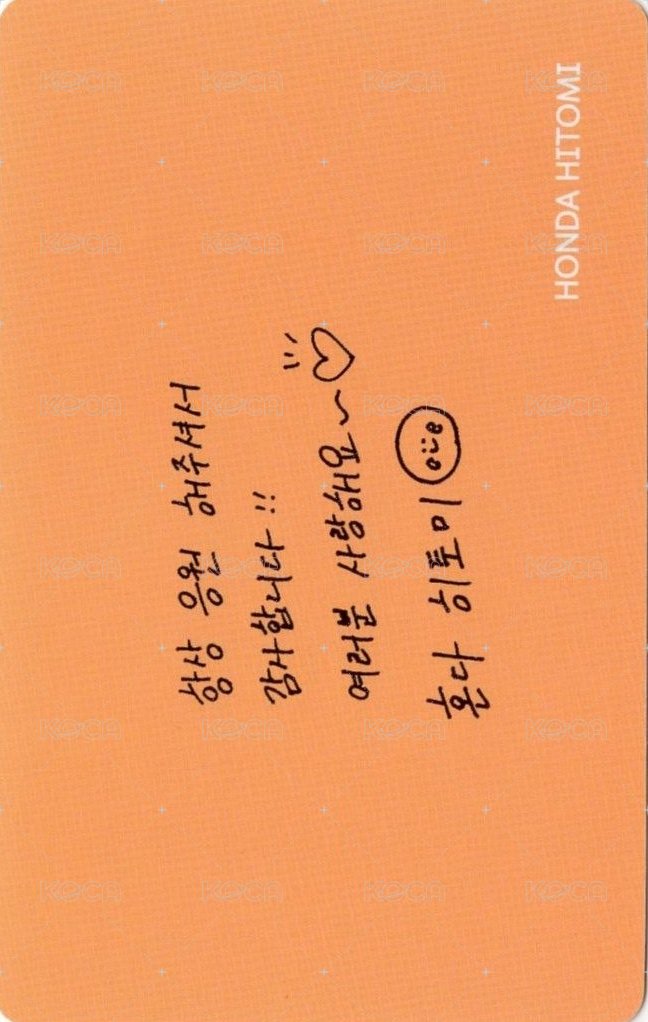 항상 응원 해주셔서
감사합니다!!
여러분 사랑해요~♡
혼다 히토미
HONDA HITOMI
KOCA